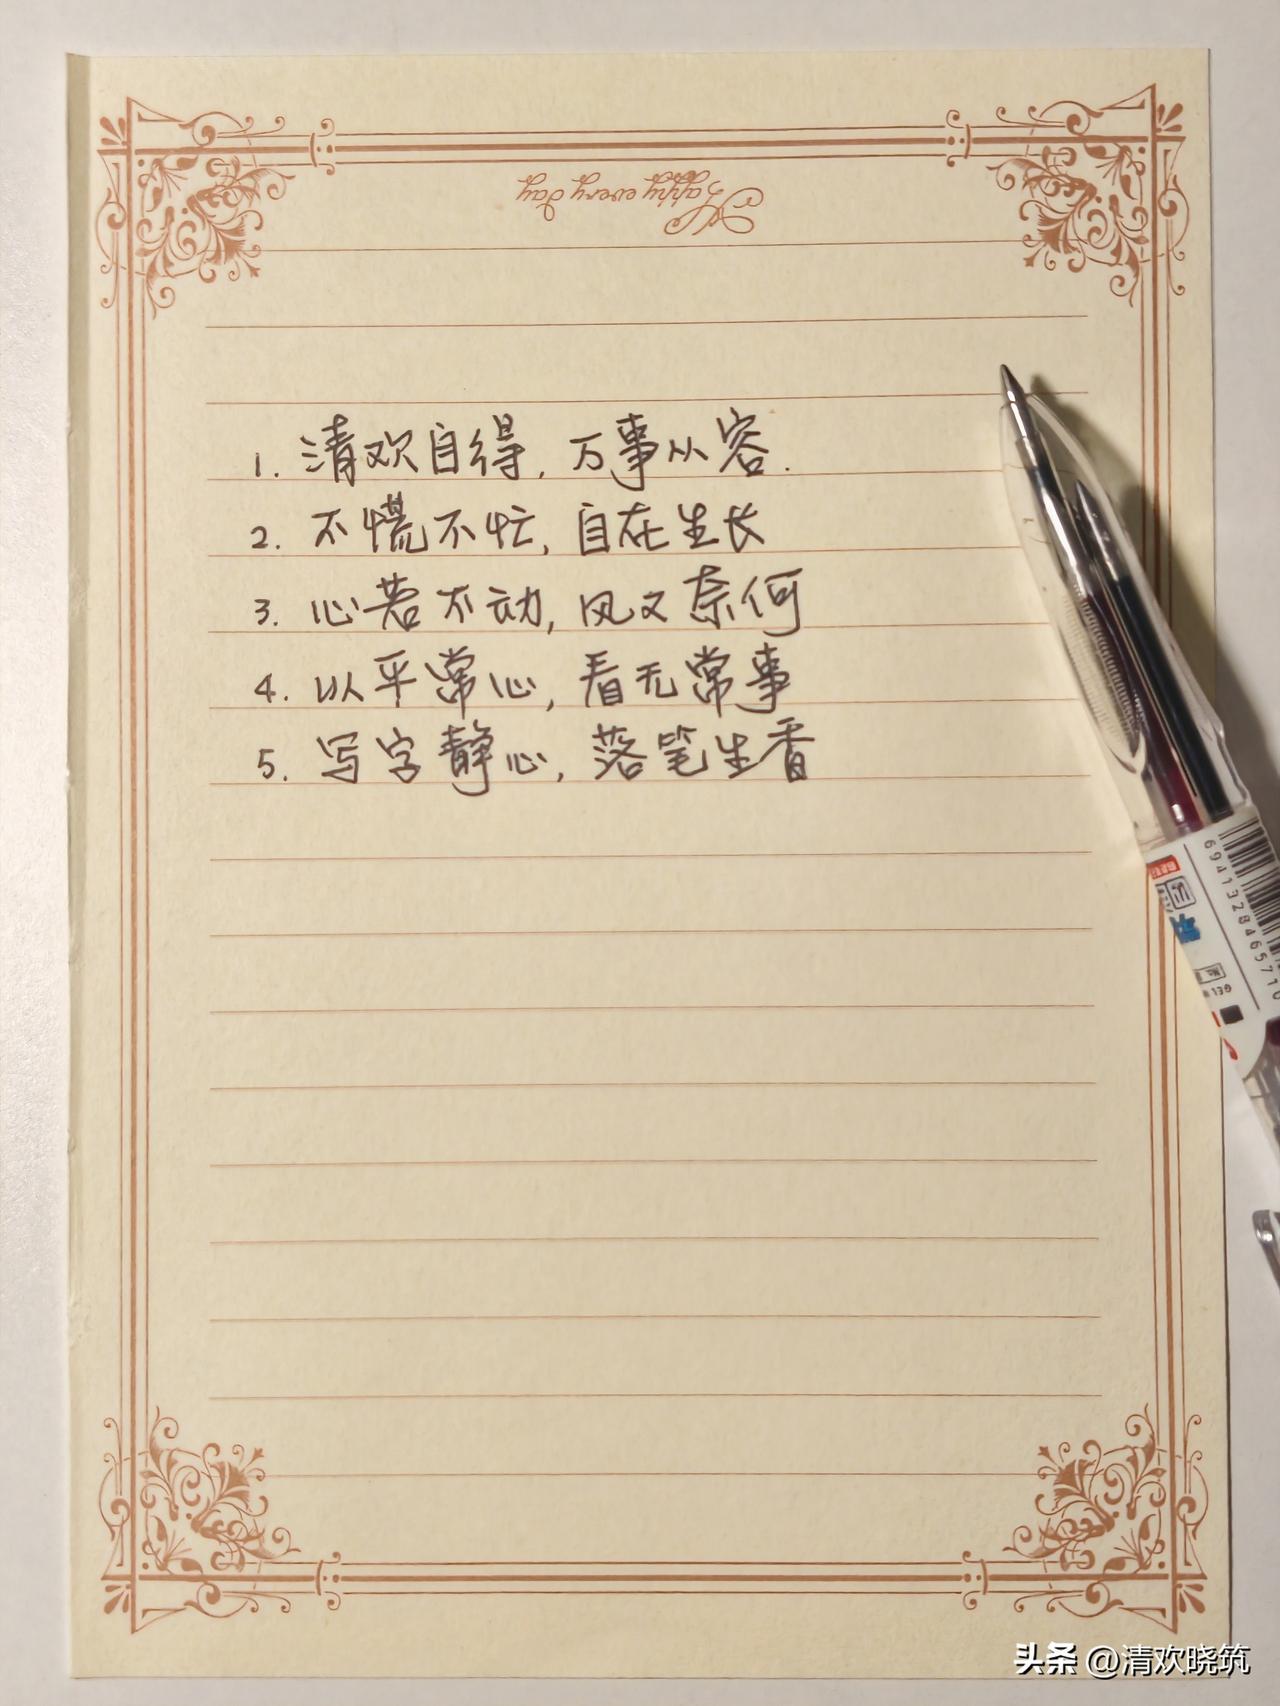 Happy every day
1. 清欢自得, 万事从容.
2. 不慌不忙, 自在生长
3. 心若不动, 风又奈何
4. 以平常心, 看无常事
5. 写字静心, 落笔生香
6941328465710
头条 @清欢晓筑